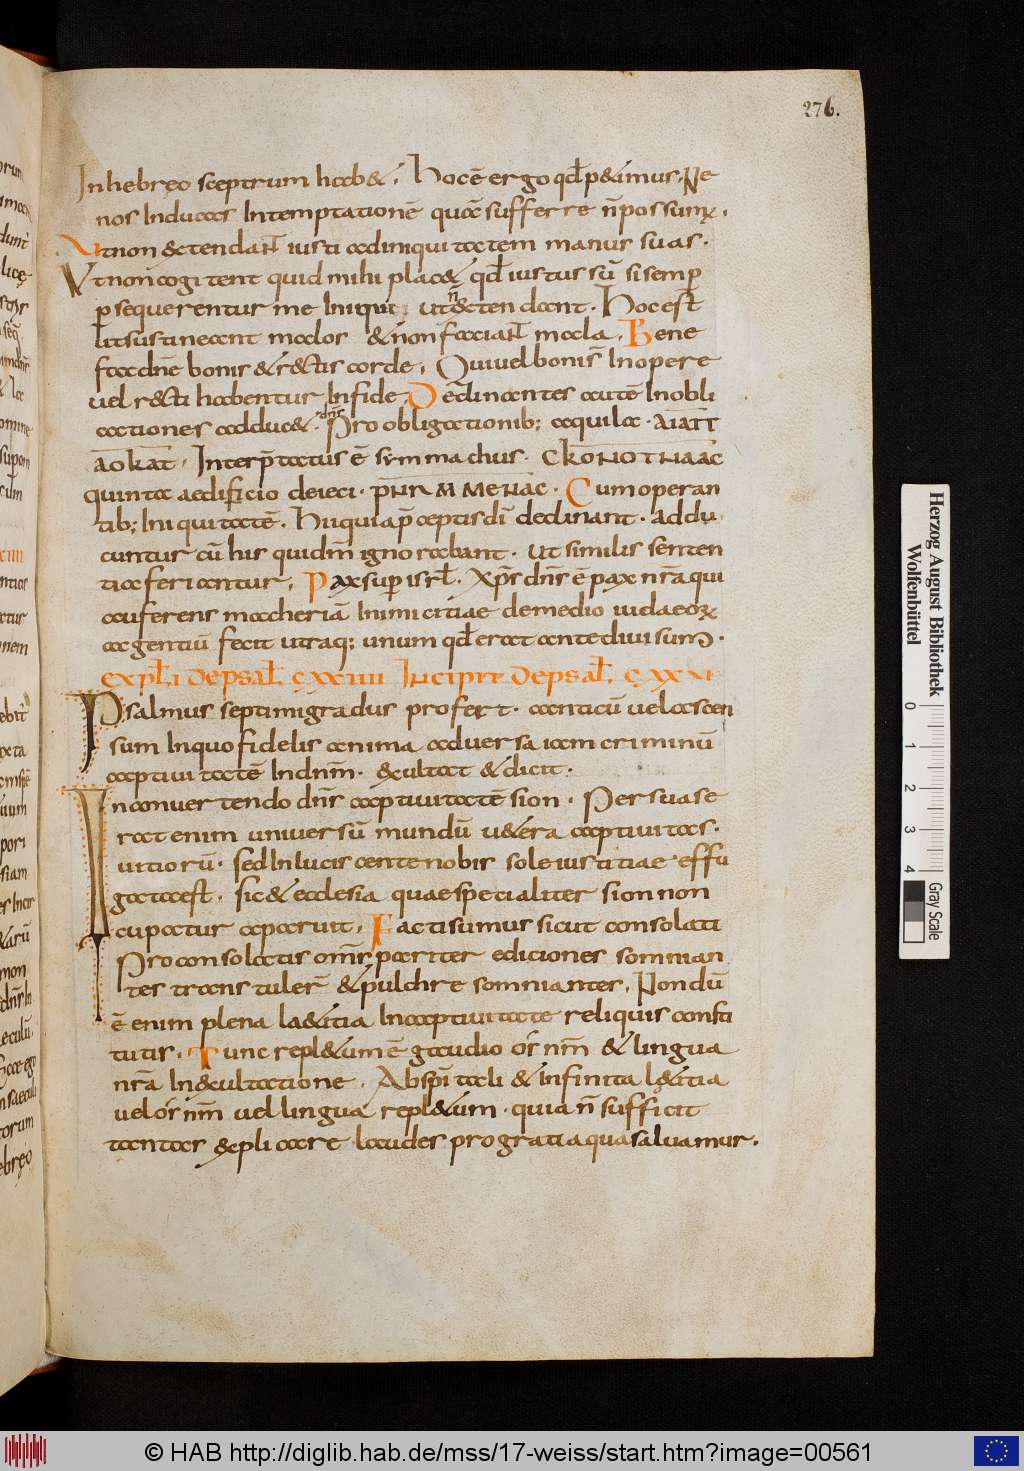 276.
In hebręo sceptrum hab&. Hoc ē ergo qđ p&imus. Ne
nos Inducas Intemptationē quā sufferre ñ possumꝰ.
Ut non &tendaNT iusti ad iniquitatem manus suas.
Ut non cogitent quid mihi plac& qđ iustus sū si semp̄
p̄sequerentur me Iniqui ut ñ &tendant. Hoc est
ut sustineant malos & non faciaNT mala. Bene
fac dñe bonis & r&tis corde. Qui uel bonis In opere
uel r&ti habentur In fide. Declinantes autē In obli
gationes adduc& dñs. Pro obligationib; aquila
Interp̄tatus ē symmachus.
quinta aedificio deieci. Cum operan
tib; Iniquitatē. Hii qui ap̄ceptis dī declinant. addu
cuntur cū his qui dñm ignorabant. ut similis senten
tia feriantur. Pax sup isrł. Xp̄s dñs ē pax nr̄a qui
auferens maceriā Inimicitiae de medio iudaeoꝝ
ac gentiū fecit utraq; unum qđ erat ante diuisum.
expłi de psał. CXXIIII Incipit de psał. CXXV
Psalmus septimi gradus profert. canticū uel ascen
sum In quo fidelis anima aduersa iam criminū
captiuitatē In dnm̄. &cultat & dicit.
In conuertendo dñs captiuitatē sion. Persuase
rat enim uniuersū mundū u&era captiuitas.
uitiorū. sed In lucis aente nobis sole iustitiae effu
gata est. sic & ecclesia quae specialiter sion non
cupatur aparuit. Facti sumus sicut consolati
Pro consolatis om̄s pariter ediciones somnian
tes transtulerē & pulchre somniantes. Nondū
ē enim plena la&itia In captiuitate reliquis consti
tutis. Tunc repl&um ē gaudio os nm̄ & lingua
nr̄a In &cultatione. Abspītali & infinita l&itia
uel os nm̄ uel lingua repl&um. quia ñ sufficit
tantas &plicare laudes pro gratia qua saluamur.
Herzog August Bibliothek
Wolfenbüttel
0 1 2 3 4
Gray Scale
© HAB http://diglib.hab.de/mss/17-weiss/start.htm?image=00561